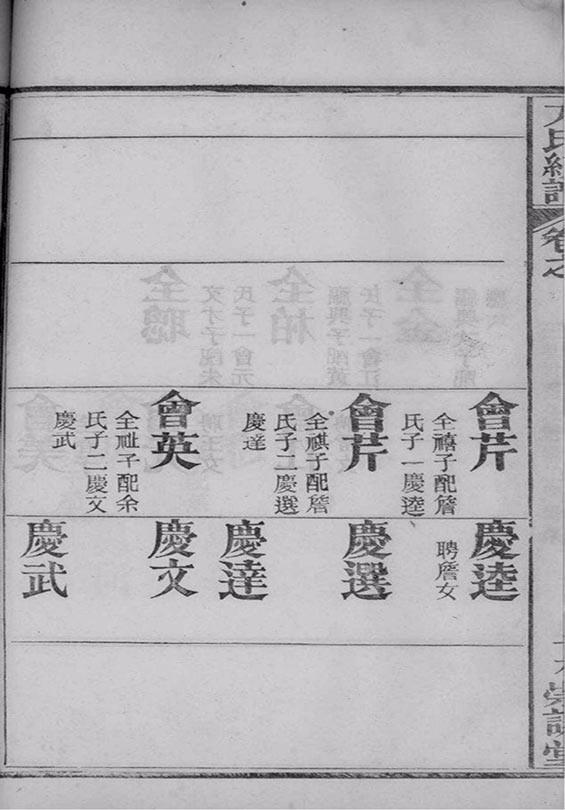 卷之
會芹
全禧子配詹
氏子一慶逵
會芹
全祺子配詹
氏子二慶選
慶達
會英
全祉子配余
氏子二慶文
慶武
慶逵
聘詹女
慶選
慶達
慶文
慶武